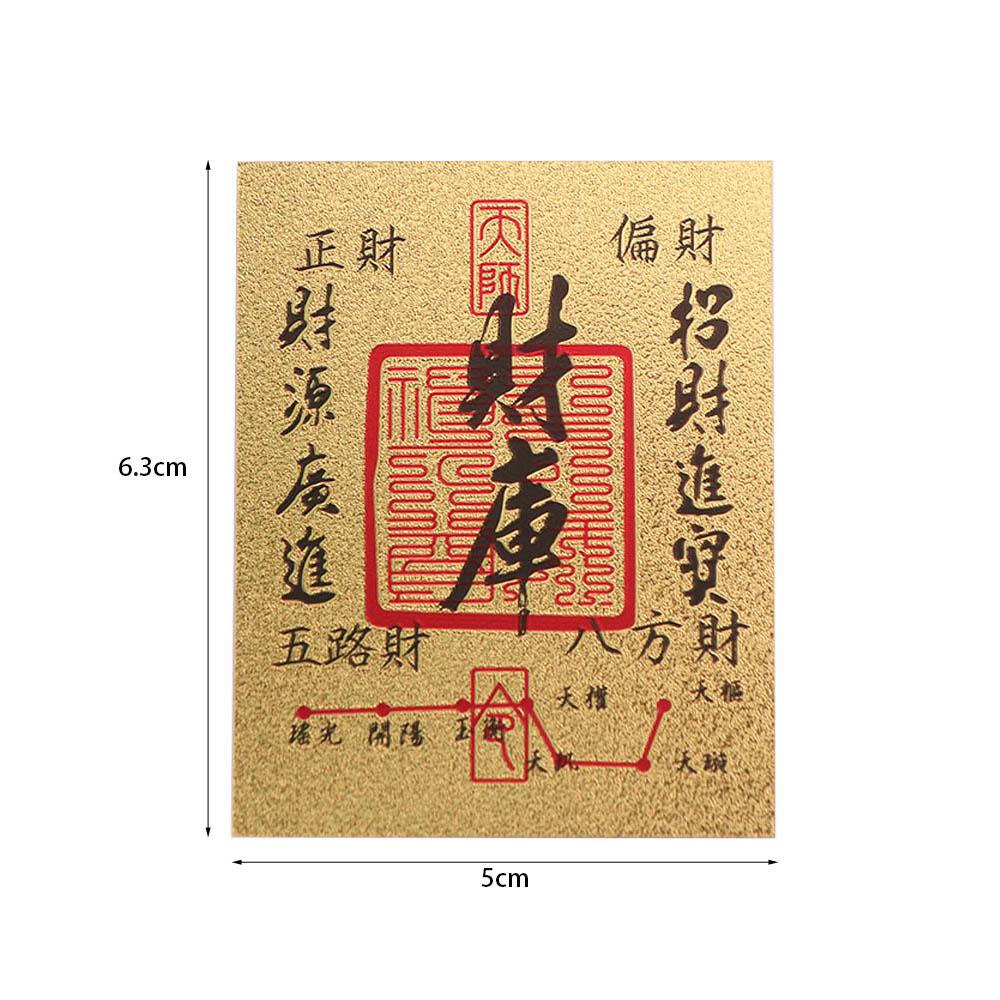 天師
正財
偏財
財庫
財源廣進
招財進寶
五路財
八方財
令
瑤光
開陽
玉衡
天權
天樞
天璣
天璇
6.3cm
5cm